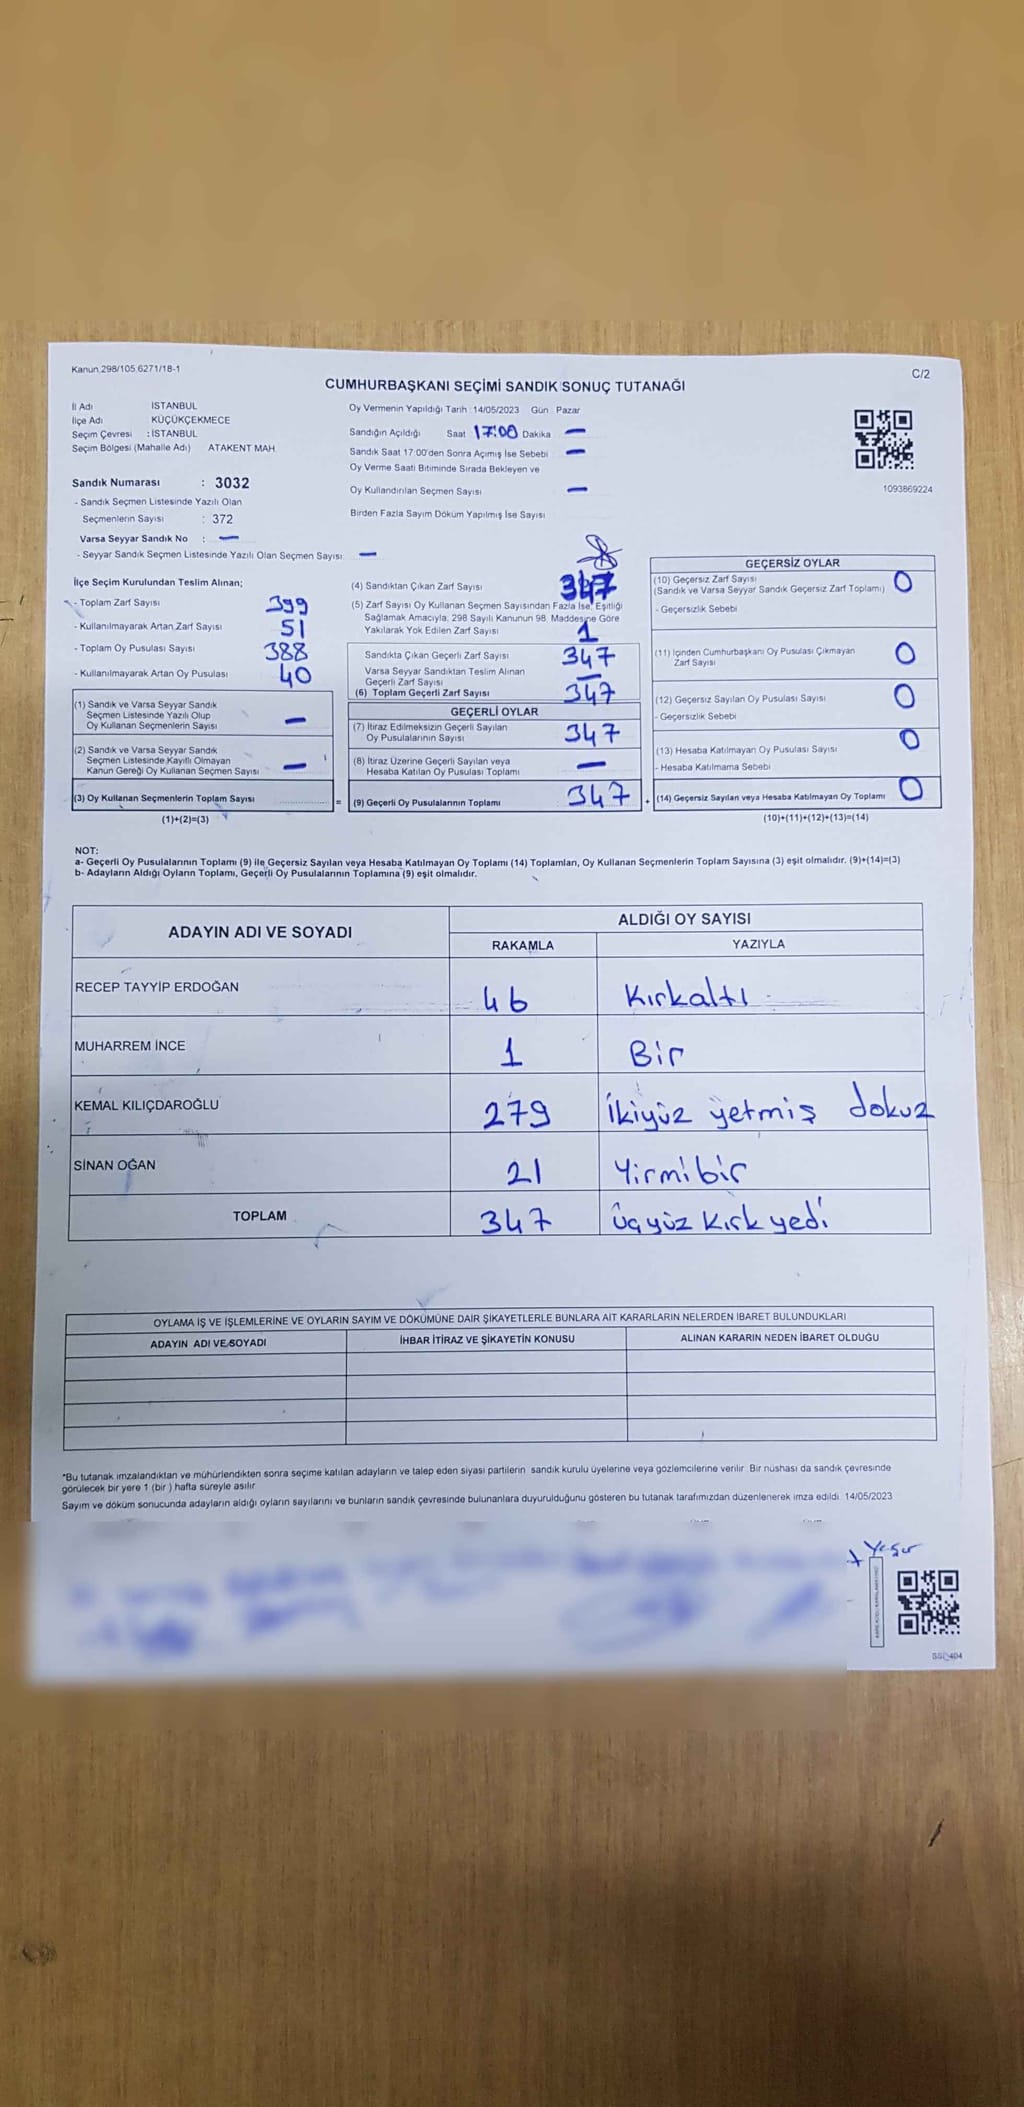 Kanun,298/105.6271/18-1
C/2
CUMHURBAŞKANI SEÇİMİ SANDIK SONUÇ TUTANAĞI
İl Adı İSTANBUL
İlçe Adı KÜÇÜKÇEKMECE
Seçim Çevresi : İSTANBUL
Seçim Bölgesi (Mahalle Adı) ATAKENT MAH.
Sandık Numarası : 3032
- Sandık Seçmen Listesinde Yazılı Olan
Seçmenlerin Sayısı : 372
Varsa Seyyar Sandık No : —
- Seyyar Sandık Seçmen Listesinde Yazılı Olan Seçmen Sayısı: —
Oy Vermenin Yapıldığı Tarih :14/05/2023 Gün : Pazar
Sandığın Açıldığı Saat 17:00 Dakika —
Sandık Saat 17:00'den Sonra Açımış İse Sebebi —
Oy Verme Saati Bitiminde Sırada Bekleyen ve
Oy Kullandırılan Seçmen Sayısı —
Birden Fazla Sayım Döküm Yapılmış İse Sayısı
1093869224
İlçe Seçim Kurulundan Teslim Alınan;
- Toplam Zarf Sayısı 399
- Kullanılmayarak Artan Zarf Sayısı 51
- Toplam Oy Pusulası Sayısı 388
- Kullanılmayarak Artan Oy Pusulası 40
(1) Sandık ve Varsa Seyyar Sandık
Seçmen Listesinde Yazılı Olup
Oy Kullanan Seçmenlerin Sayısı —
(2) Sandık ve Varsa Seyyar Sandık
Seçmen Listesinde Kayıtlı Olmayan
Kanun Gereği Oy Kullanan Seçmen Sayısı —
(3) Oy Kullanan Seçmenlerin Toplam Sayısı ............... =
(1)+(2)=(3)
(4) Sandıktan Çıkan Zarf Sayısı 347
(5) Zarf Sayısı Oy Kullanan Seçmen Sayısından Fazla İse, Eşitliği
Sağlamak Amacıyla, 298 Sayılı Kanunun 98. Maddesine Göre
Yakılarak Yok Edilen Zarf Sayısı 1
Sandıkta Çıkan Geçerli Zarf Sayısı 347
Varsa Seyyar Sandıktan Teslim Alınan
Geçerli Zarf Sayısı —
(6) Toplam Geçerli Zarf Sayısı 347
GEÇERLİ OYLAR
(7) İtiraz Edilmeksizin Geçerli Sayılan
Oy Pusulalarının Sayısı 347
(8) İtiraz Üzerine Geçerli Sayılan veya
Hesaba Katılan Oy Pusulası Toplamı —
(9) Geçerli Oy Pusulalarının Toplamı 347 +
GEÇERSİZ OYLAR
(10) Geçersiz Zarf Sayısı
(Sandık ve Varsa Seyyar Sandık Geçersiz Zarf Toplamı) 0
- Geçersizlik Sebebi
(11) İçinden Cumhurbaşkanı Oy Pusulası Çıkmayan
Zarf Sayısı 0
(12) Geçersiz Sayılan Oy Pusulası Sayısı 0
- Geçersizlik Sebebi
(13) Hesaba Katılmayan Oy Pusulası Sayısı 0
- Hesaba Katılmama Sebebi
(14) Geçersiz Sayılan veya Hesaba Katılmayan Oy Toplamı 0
(10)+(11)+(12)+(13)=(14)
NOT:
a- Geçerli Oy Pusulalarının Toplamı (9) ile Geçersiz Sayılan veya Hesaba Katılmayan Oy Toplamı (14) Toplamları, Oy Kullanan Seçmenlerin Toplam Sayısına (3) eşit olmalıdır. (9)+(14)=(3)
b- Adayların Aldığı Oyların Toplamı, Geçerli Oy Pusulalarının Toplamına (9) eşit olmalıdır.
ADAYIN ADI VE SOYADI
ALDIĞI OY SAYISI
RAKAMLA YAZIYLA
RECEP TAYYİP ERDOĞAN 46 Kırkaltı
MUHARREM İNCE 1 Bir
KEMAL KILIÇDAROĞLU 279 İkiyüz yetmiş dokuz
SİNAN OĞAN 21 Yirmibir
TOPLAM 347 Üçyüz Kırk yedi
OYLAMA İŞ VE İŞLEMLERİNE VE OYLARIN SAYIM VE DÖKÜMÜNE DAİR ŞİKAYETLERLE BUNLARA AİT KARARLARIN NELERDEN İBARET BULUNDUKLARI
ADAYIN ADI VE SOYADI İHBAR İTİRAZ VE ŞİKAYETİN KONUSU ALINAN KARARIN NEDEN İBARET OLDUĞU
*Bu tutanak imzalandıktan ve mühürlendikten sonra seçime katılan adayların ve talep eden siyasi partilerin sandık kurulu üyelerine veya gözlemcilerine verilir. Bir nüshası da sandık çevresinde
görülecek bir yere 1 (bir ) hafta süreyle asılır.
Sayım ve döküm sonucunda adayların aldığı oyların sayılarını ve bunların sandık çevresinde bulunanlara duyurulduğunu gösteren bu tutanak tarafımızdan düzenlenerek imza edildi. 14/05/2023